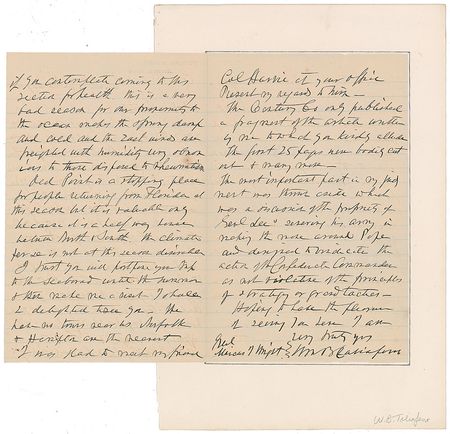 if you contemplate coming to this
section for health this is a very
bad season for our proximity to
the ocean makes the spring damp
and cold and the East winds are
freighted with humidity very
to those disposed to rheumatism
Old Point is a stopping place
for people returning from Florida at
this season but it is valuable only
because it is a half way house
between North & South the climate
per se is not at this season desirable
I trust you will postpone your trip
to the seaboard until the summer
& then make me a visit I shall
be delighted to see you - We
have no towns near us Norfolk
& Hampton are the nearest
I was glad to meet my friend
Col Harris at your office
Present my regards to him -
The Century Co only published
a fragment of the article written
by me to which you kindly allude
The first 25 pages were bodily cut
out & many more -
The most important part in my judg
ment was thrown aside which
was a discussion of the propriety of
Genl Lee's severing his army in
making the move around Pope
and designed to vindicate the
action of the Confederate Commander
as not violative of the principles
of strategy or grand tactics -
Hoping to have the pleasure
of seeing you here I am
Very truly yrs
Genl
Marcus J Wright Wm B Taliaferro
W. B. Taliaferro